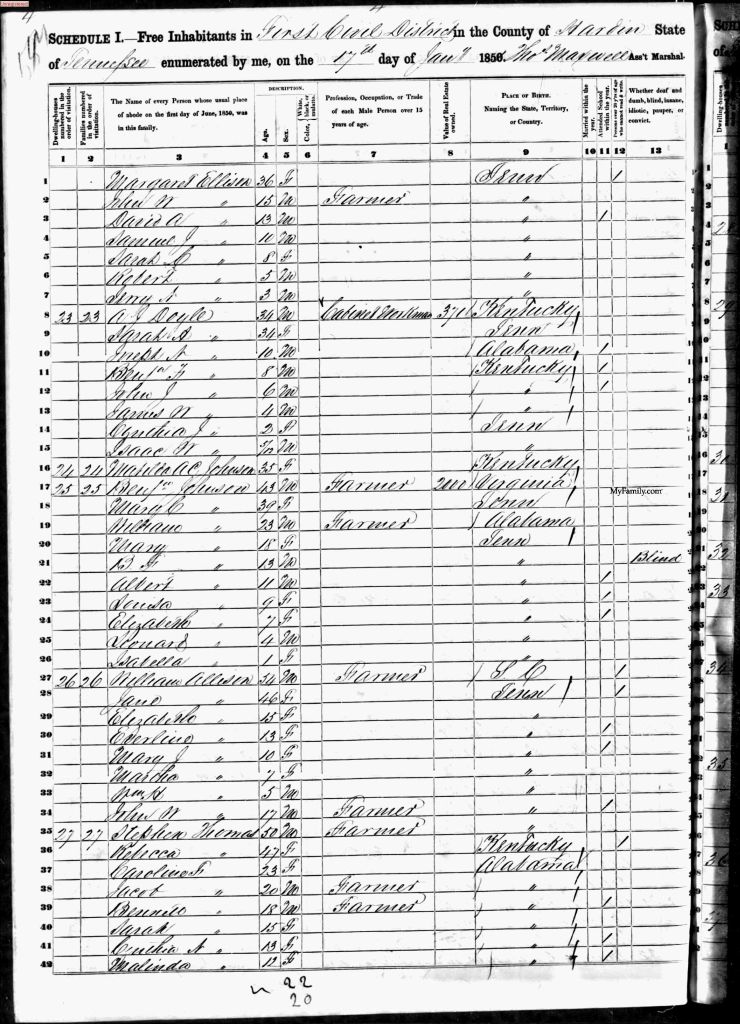 4
4
SCHEDULE I.—Free Inhabitants in First Civil District in the County of Hardin State
of Tennessee enumerated by me, on the 17th day of 1850. Thos Maxwell Ass't Marshal.
Dwelling-houses numbered in the order of visitation.
Families numbered in the order of visitation.
The Name of every Person whose usual place of abode on the first day of June, 1850, was in this family.
DESCRIPTION.
Age.
Sex.
Color, White, black, or mulatto.
Profession, Occupation, or Trade of each Male Person over 15 years of age.
Value of Real Estate owned.
PLACE OF BIRTH. Naming the State, Territory, or Country.
Married within the year.
Attended School within the year.
Persons over 20 y'rs of age who cannot read & write.
Whether deaf and dumb, blind, insane, idiotic, pauper, or convict.
1 2 3 4 5 6 7 8 9 10 11 12 13
1 Margaret Ellison 36 F Tenn /
2 John W " 15 M Farmer "
3 David A " 13 M " /
4 Samuel J " 10 M "
5 Sarah " 8 F "
6 Robert " 5 M "
7 " 3 M "
8 23 23 A J Doyle " 34 M Cabinet Workman Kentucky
9 Sarah A " 34 F Tenn
10 " 10 M Alabama /
11 Benjn F " 8 M Kentucky /
12 John J " 6 M " /
13 James W " 4 M "
14 Cynthia J " 2 F Tenn
15 Isaac W " M "
16 24 24 A C Johnson 35 F Kentucky
17 25 25 Benjn Johnson 43 M Farmer Virginia
18 Mary C " 39 F Tenn
19 " 23 M Farmer Alabama
20 Mary " 18 F Tenn
21 B F " 13 M " Blind
22 Albert " 11 M " /
23 Louisa " 9 F " /
24 Elizabeth " 7 F " /
25 Leonard " 4 M "
26 Isabella " 1 F "
27 26 26 William Allison 54 M Farmer S C /
28 Jane " 46 F Tenn /
29 Elizabeth " 15 F "
30 Everline " 13 F " /
31 Mary J " 10 F " /
32 Martha " 7 F "
33 Wm H " 5 M "
34 John W " 17 M Farmer " /
35 27 27 Stephen Thomas 50 M Farmer "
36 Rebecca " 47 F Kentucky /
37 Caroline F " 23 F Alabama
38 Jacob " 20 M Farmer "
39 " 18 M Farmer " /
40 Sarah " 15 F "
41 Cynthia A " 13 F " /
42 Malinda " 12 F " /
22
20
MyFamily.com